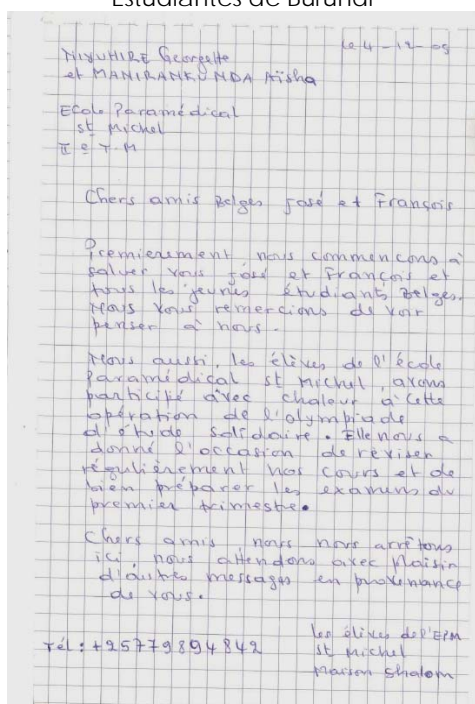 Estudiantes de Burundi
le 4-12-09
NIYUHIRE Georgette
et MANIRANKUNDA Aïsha
Ecole Paramédical
st Michel
II e T.M
Chers amis Belges José et François
Premierement nous commencons à
saluer vous José et François et
tous les jeunes étudiants Belges.
Nous vous remercions de voir
penser à nous.
Nous aussi, les élèves de l'école
paramédical st Michel, avons
participé avec chaleur à cette
opération de l'olympiade
d'étude solidaire. Elle nous a
donné l'occasion de réviser
régulièrement nos cours et de
bien préparer les examens du
premier trimestre.
Chers amis nous nous arrêtons
ici, nous attendons avec plaisir
d'autres messages en provenance
de vous.
les élèves de l'EPM
Tél : +25779894842 st Michel
Maison Shalom